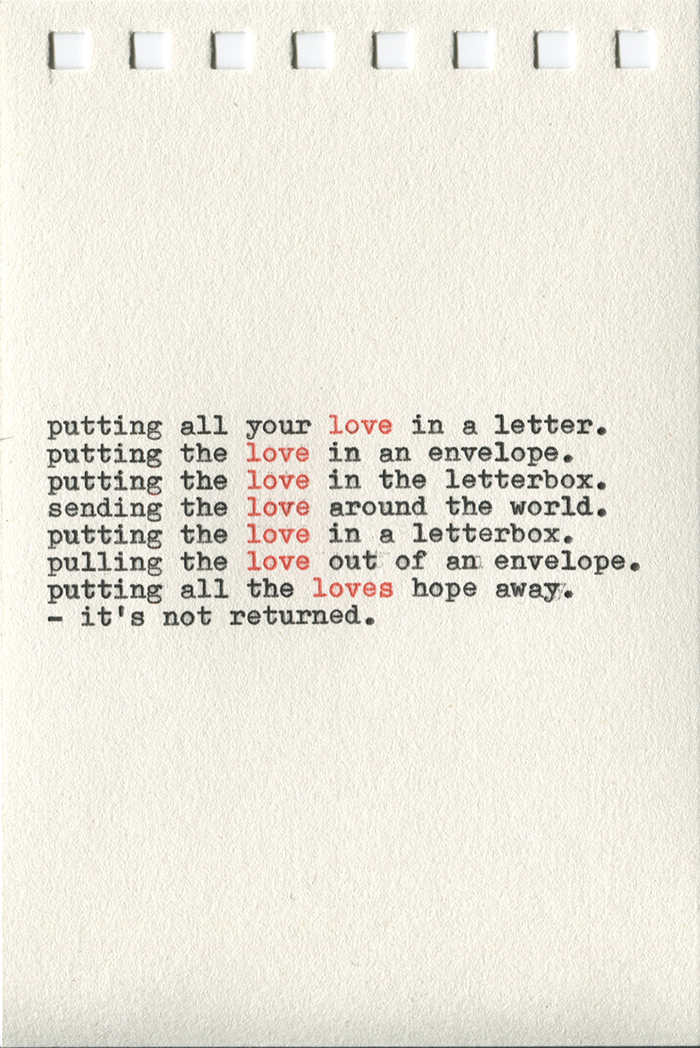 putting all your love in a letter.
putting the love in an envelope.
putting the love in the letterbox.
sending the love around the world.
putting the love in a letterbox.
pulling the love out of an envelope.
putting all the loves hope away.
- it's not returned.